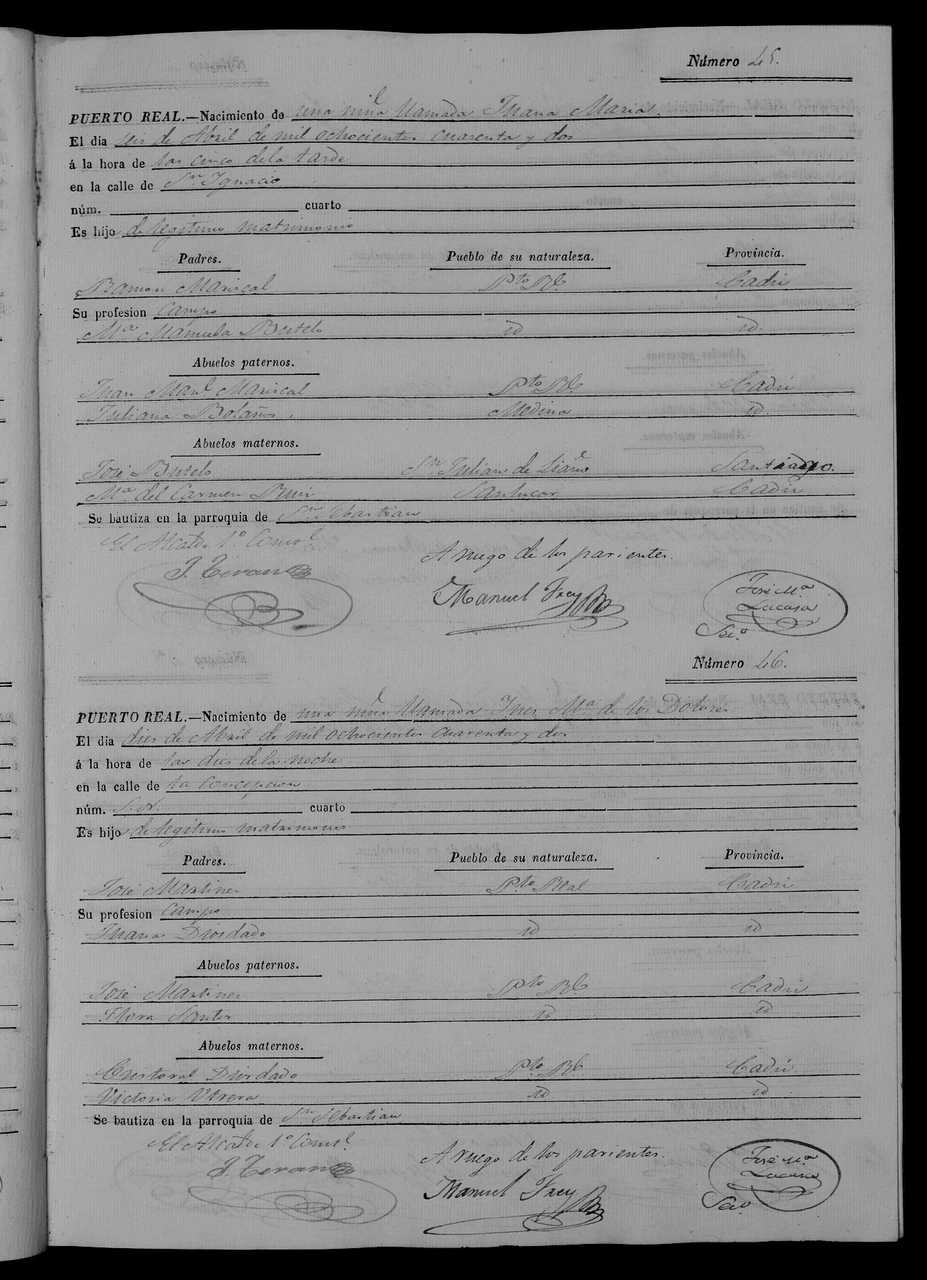 Número 45.
PUERTO REAL.—Nacimiento de una niña llamada Juana Maria
El dia seis de Abril de mil ochocientos cuarenta y dos
á la hora de las cinco de la tarde
en la calle de Sn Ignacio
núm. cuarto
Es hijo de legitimo matrimonio
Padres. Pueblo de su naturaleza. Provincia.
Ramon Mariscal Pto Rl Cadiz
Su profesion Campo
Ma Manuela Butelo id id.
Abuelos paternos.
Juan Manl Mariscal Pto Rl Cadiz
Juliana Bolaños Medina id
Abuelos maternos.
José Butelo Sn Julian de Santiago.
Ma del Carmen Sanlucar Cadiz
Se bautiza en la parroquia de Sn Sebastian
El Alcalde 1o Consl
J. Teran
A ruego de los parientes.
Manuel
José Ma
Lacasa
Seco.
Número 46.
PUERTO REAL.—Nacimiento de una niña llamada Ines Ma de los Dolores
El dia dies de Abril de mil ochocientos cuarenta y dos
á la hora de las dies de la noche
en la calle de la Concepcion
núm. S. N. cuarto
Es hijo de legitimo matrimonio
Padres. Pueblo de su naturaleza. Provincia.
José Martinez Pto Real Cadiz
Su profesion Campo
Juana Diosdado id id
Abuelos paternos.
José Martinez Pto Rl Cadiz
Flora id id
Abuelos maternos.
Cristoval Diosdado Pto Rl Cadiz
Victoria Utrera id id.
Se bautiza en la parroquia de Sn Sebastian
El Alcalde 1o Consl
J. Teran
A ruego de los parientes.
Manuel
José Ma
Lacasa
Seco.